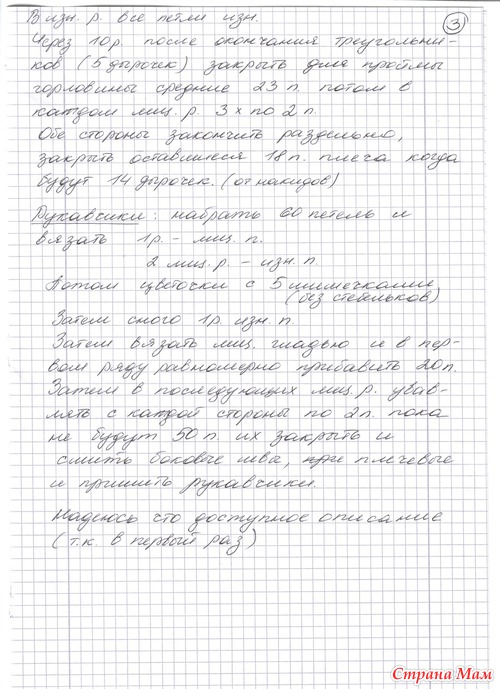 В изн. р. все петли изн.
3
Через 10 р. после окончания треугольни-
ков (5 дырочек) закрыть для проймы
горловины средние 23 п. потом в
каждом лиц. р. 3 х по 2 п.
Обе стороны закончить раздельно,
закрыть оставшиеся 18 п. плеча когда
будут 14 дырочек. (от накидов)
Рукавчики: набрать 60 петель и
вязать 1 р. - лиц. п.
2 лиц. р. - изн. п.
Потом цветочки с 5
(без стебельков)
Затем снова 1 р. изн. п.
Затем вязать лиц. гладью и в пер-
вом ряду равномерно прибавить 20 п.
Затем в последующих лиц. р. убав-
лять с каждой стороны по 2 п. пока
не будут 50 п. их закрыть и
сшить боковые швы, при плечевые
и пришить рукавчики.
Надеюсь что доступное описание
(т.к. в первый раз)
Страна Мам